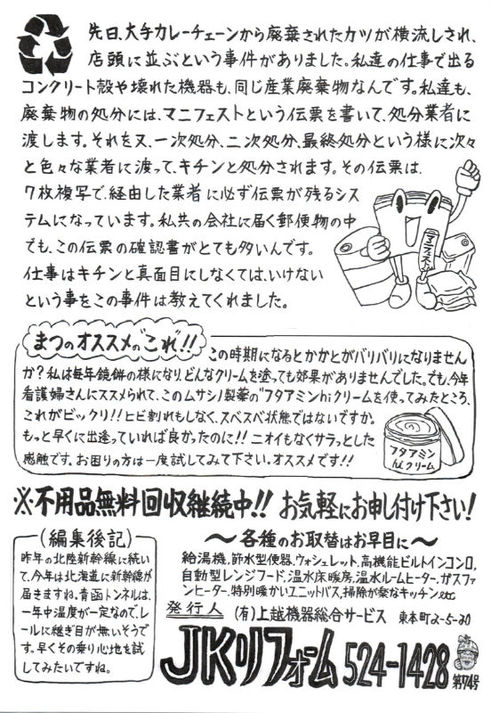 先日、大手カレーチェーンから廃棄されたカツが横流しされ、
店頭に並ぶという事件がありました。私達の仕事で出る
コンクリート殻や壊れた機器も、同じ産業廃棄物なんです。私達も、
廃棄物の処分には、マニフェストという伝票を書いて、処分業者に
渡します。それを又、一次処分、二次処分、最終処分という様に次々
と色々な業者に渡って、キチンと処分されます。その伝票は、
7枚複写で、経由した業者に必ず伝票が残るシス
テムになっています。私共の会社に届く郵便物の中
でも、この伝票の確認書がとても多いんです。
仕事はキチンと真面目にしなくては、いけない
という事をこの事件は教えてくれました。
まつのオススメの"これ"!!
この時期になるとかかとがバリバリになりません
か?私は毎年鏡餅の様になり、どんなクリームを塗っても効果がありませんでした。でも、今年
看護婦さんにススメられて、このムサシノ製薬の"フタアミンhiクリームを使ってみたところ、
これがビックリ!!ヒビ割れもしなく、スベスベ状態ではないですか。
もっと早くに出逢っていれば良かったのに!!ニオイもなくサラッとした
感触です。お困りの方は一度試してみて下さい。オススメです!!
フタアミン
hiクリーム
※不用品無料回収継続中!! お気軽にお申し付け下さい!
(編集後記)
昨年の北陸新幹線に続い
て、今年は北海道に新幹線が
届きますね。青函トンネルは、
一年中温度が一定なので、レ
ールに継ぎ目が無いそうで
す。早くその乗り心地を試
してみたいですね。
～各種のお取替はお早目に～
給湯機、節水型便器、ウォシュレット、高機能ビルトインコンロ、
自動型レンジフード、温水床暖房、温水ルームヒーター、ガスファ
ンヒーター、特別暖かいユニットバス、掃除が楽なキッチンetc
発行人 (有)上越機器総合サービス 東本町2-5-20
JKリフォーム 524-1428 第74号